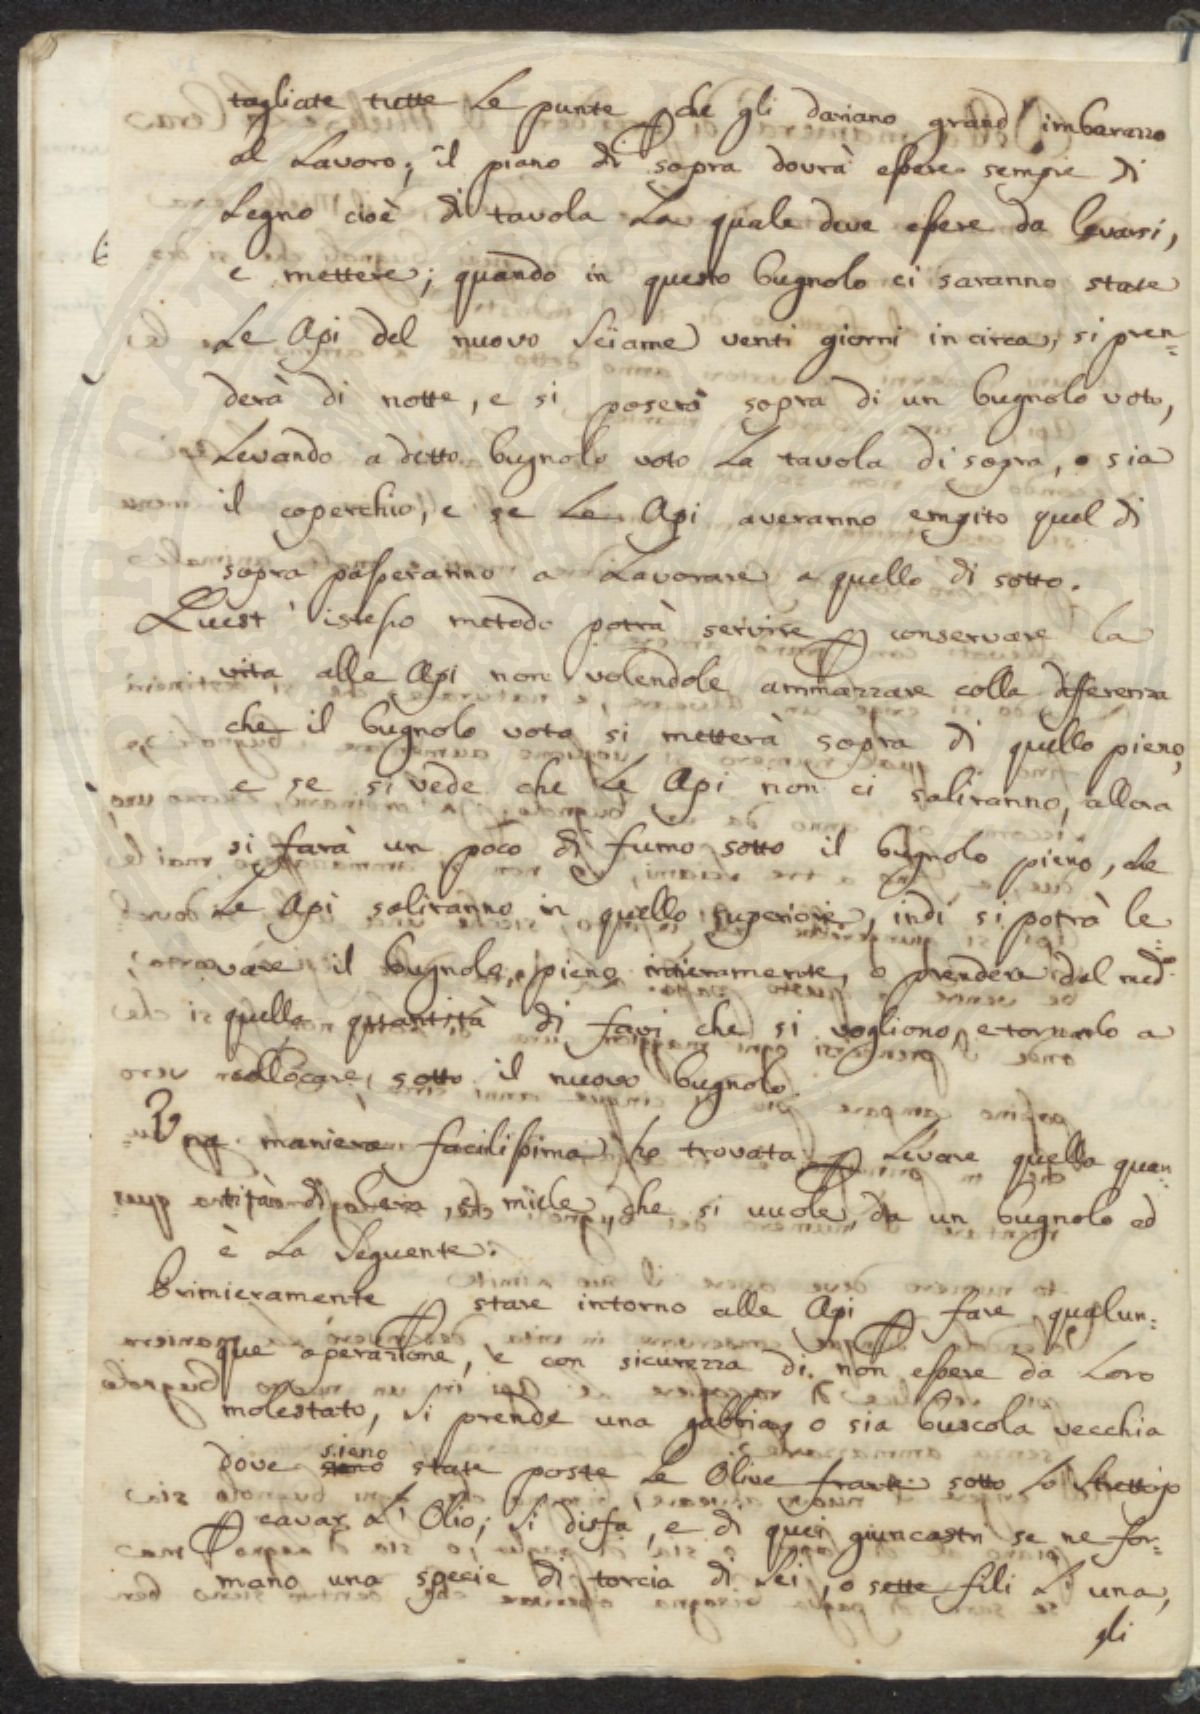 tagliate tutte le punte che gli dariano grand' imbarazzo
al Lavoro; il piano di sopra dovrà essere sempre di
Legno cioè di tavola La quale deve essere da levarsi,
e mettere; quando in questo bugnolo ci saranno state
Le Api del nuovo Sciame venti giorni in circa, si pren=
derà di notte, e si poserà sopra di un bugnolo voto,
Levando a detto bugnolo voto La tavola di sopra, o sia
il coperchio, e se Le Api averanno empito quel di
sopra passeranno a Lavorare a quello di sotto.
Quest' istesso metodo potrà servire p conservare la
vita alle Api non volendole ammazzare colla differenza
che il bugnolo voto si metterà sopra di quello pieno,
e se si vede che Le Api non ci saliranno, allora
si farà un poco di fumo sotto il bugnolo pieno, che
Le Api saliranno in quello superiore, indi si potrà le=
vare il bugnolo pieno intieramente, o prendere dal med.o
quella quantità di favi che si vogliono, e tornarlo a
collocare sotto il nuovo bugnolo.
Una maniera facilissima ho trovata p Levare quella quan=
tità di cera, e miele, che si vuole da un bugnolo ed
è La Seguente.
Primieramente p stare intorno alle Api p fare qualun=
que operazione, e con sicurezza di non essere da Loro
molestato, Si prende una gabbia, o sia buscola vecchia
dove sieno state poste Le Olive sotto Lo Strettojo
p cavar L' Olio; Si disfà, e di quei giuncastri se ne for=
mano una specie di torcia di Sei, o sette fili L' una,
gli